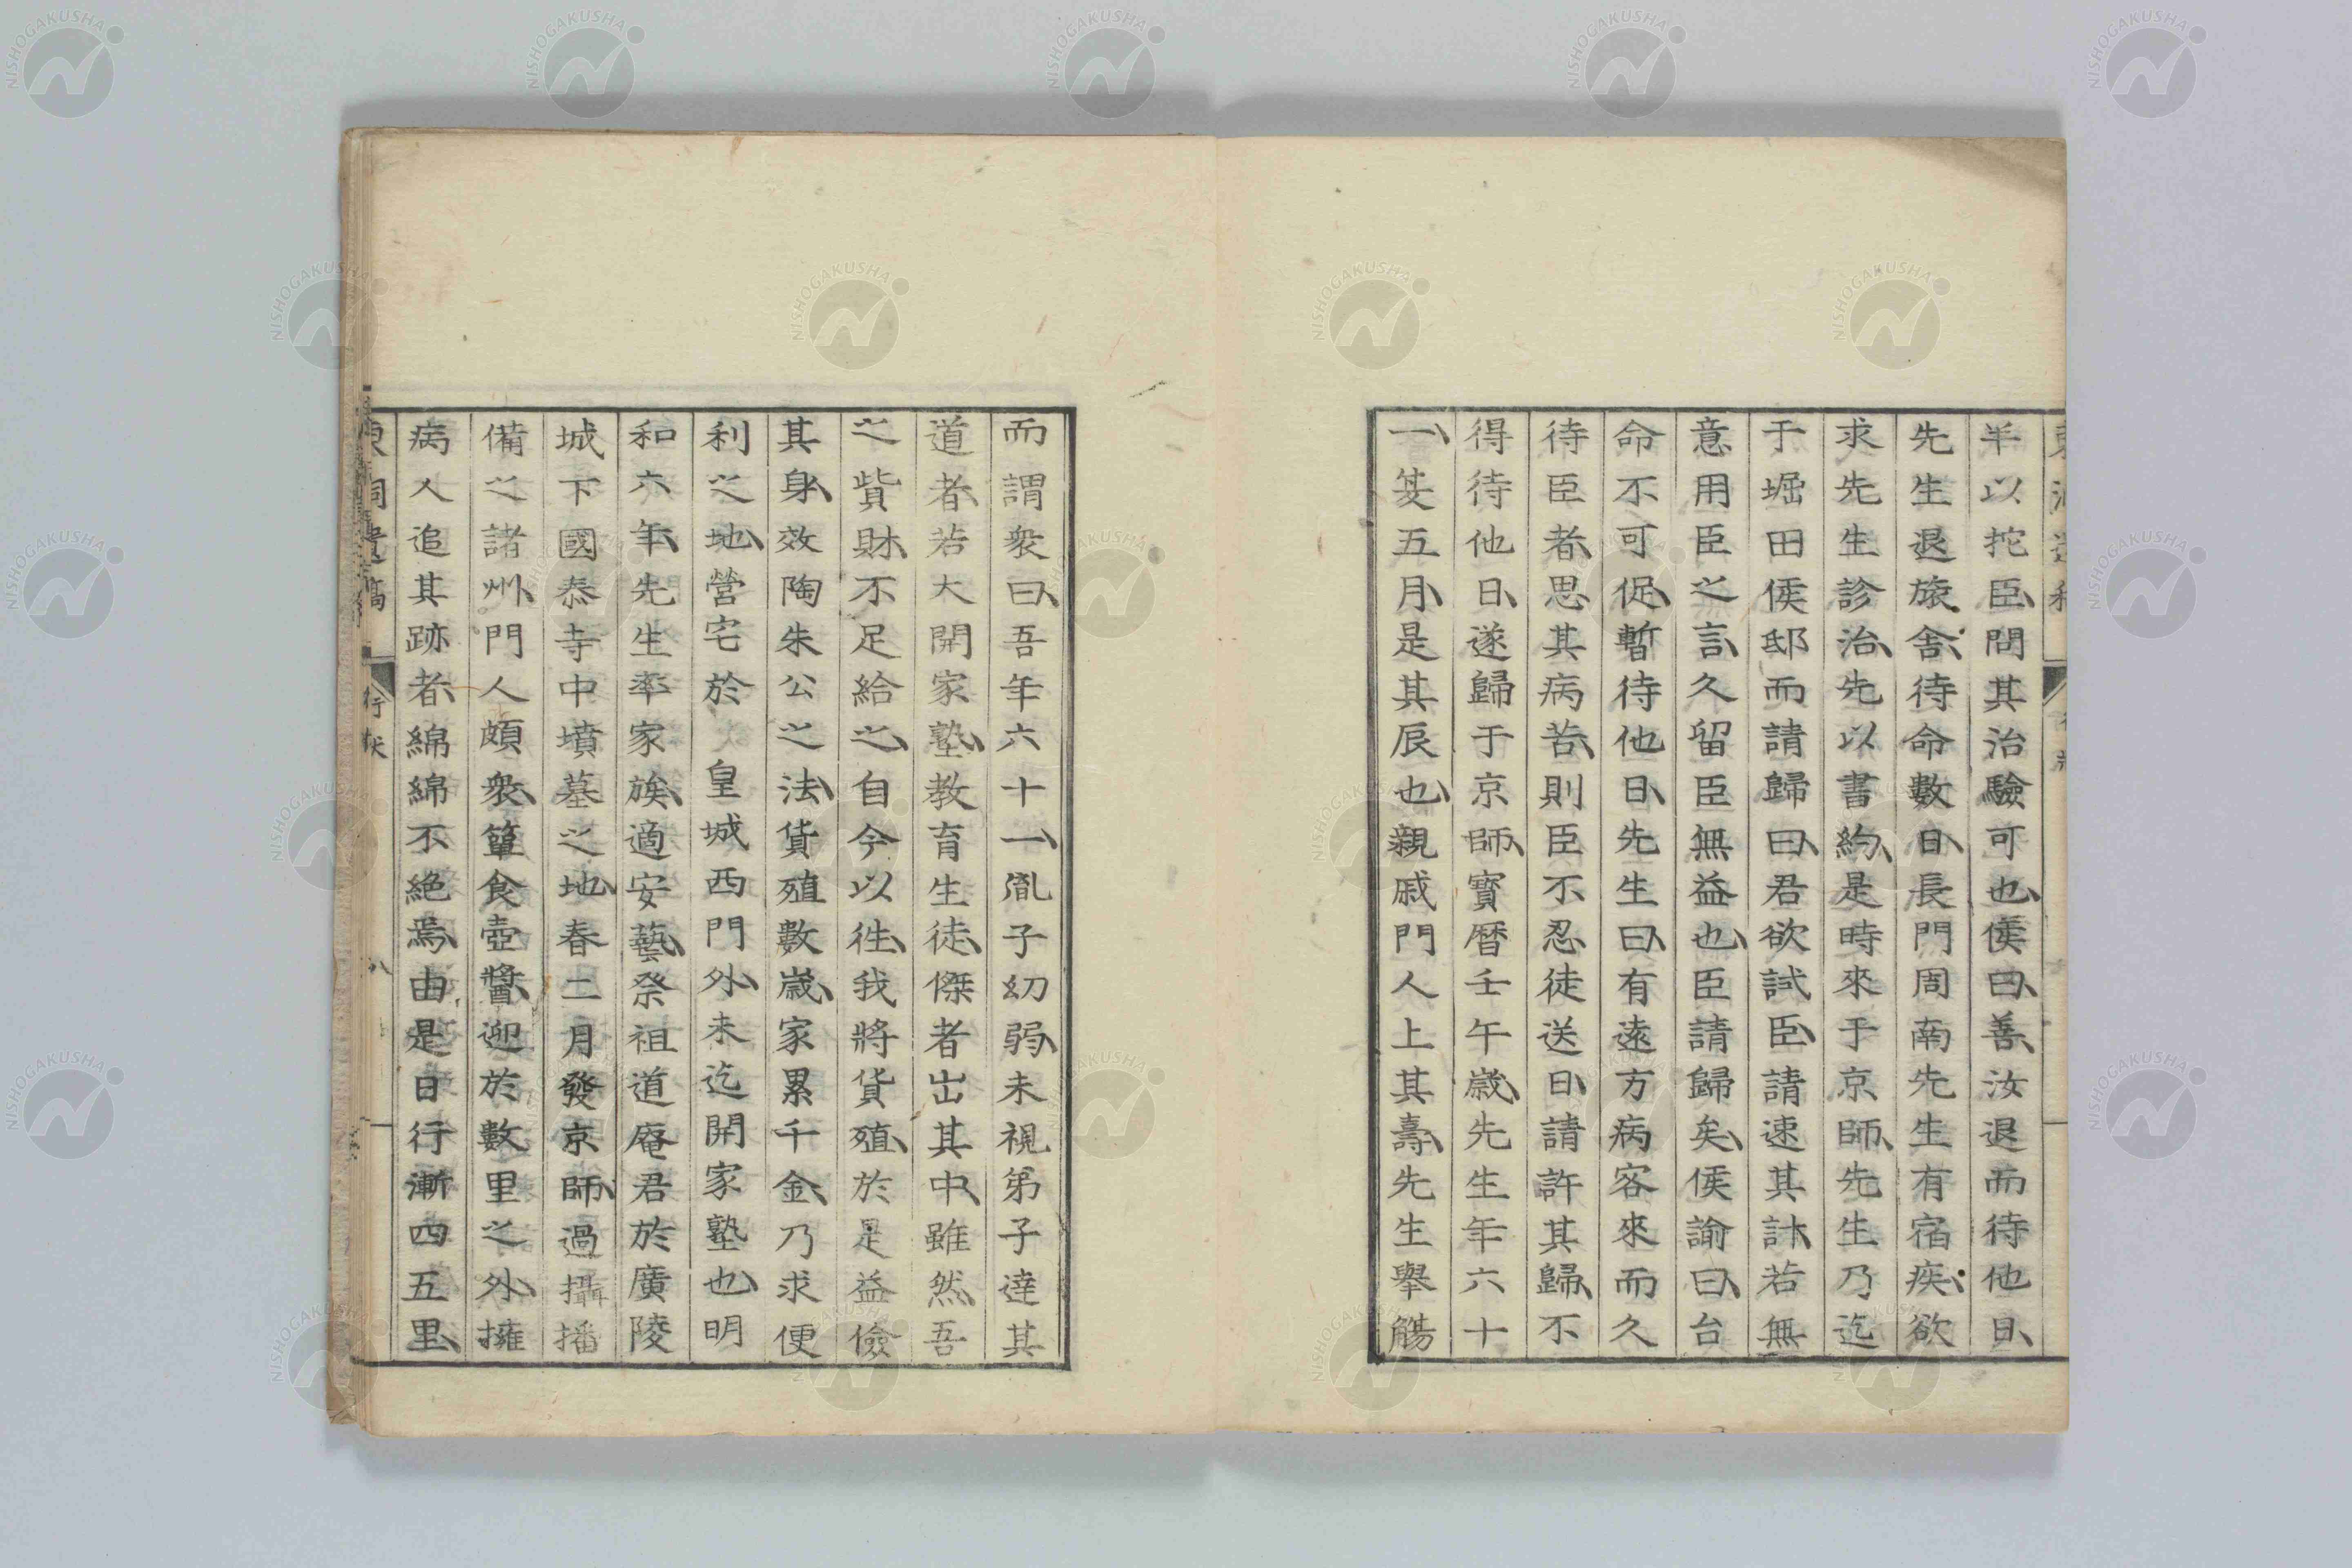 年以挖臣、問其治驗可也、侯曰、善、汝退而待他日、
先生退旅舍、待命數日、長門周南先生有宿疾、欲
求先生診治、先以書約、是時來于京師、先生乃迄
于堀田侯邸而請歸曰、君欲試臣、請速其試、若無
意用臣之言、久留臣無益也、臣請歸矣、侯諭曰、台
命不可促、暫待他日、先生曰、有遠方病客來而久
待臣者、思其病苦、則臣不忍徒送日、請許其歸、不
得待他日、遂歸于京師、寶曆壬午歲、先生年六十
一、夾五月、是其辰也、親戚門人上其壽、先生舉觴
而謂衆曰、吾年六十一、胤子幼弱、未視弟子達其
道者、若大開家塾、教育生徒、傑者出其中、雖然、吾
之貲財、不足給之、自今以往、我將貨殖、於是益儉
其身、效陶朱公之法、貨殖數歲、家累千金、乃求便
利之地、營宅於 皇城西門外、未迄開家塾也、明
和六年、先生率家族、適安藝、祭祖道庵君於廣陵
城下國泰寺中墳墓之地、春二月發京師、過攝播
備之諸州、門人頗衆、簞食壺醬、迎於數里之外、擁
病人追其跡者、綿綿不絕焉、由是日行漸四五里、
東洞遺稿 行狀 八